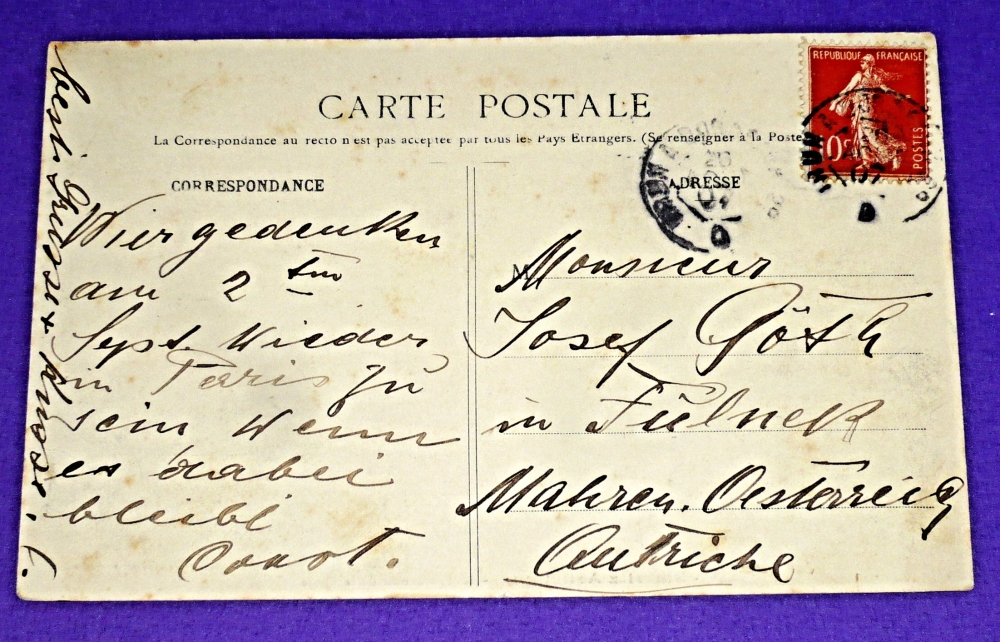 CARTE POSTALE
La Correspondance au recto n'est pas acceptée par tous les Pays Etrangers. (Se renseigner à la Poste
CORRESPONDANCE
ADRESSE
REPUBLIQUE FRANÇAISE
10c
POSTES
Wier gedenken
am 2 ten
Sept. Wieder
in Paris zu
sein Wenn
es dabei
bleibt
best. Grüsse +
M
Monsieur
Josef Göth
in Fulnek
Mähren. Oesterreich
Autriche